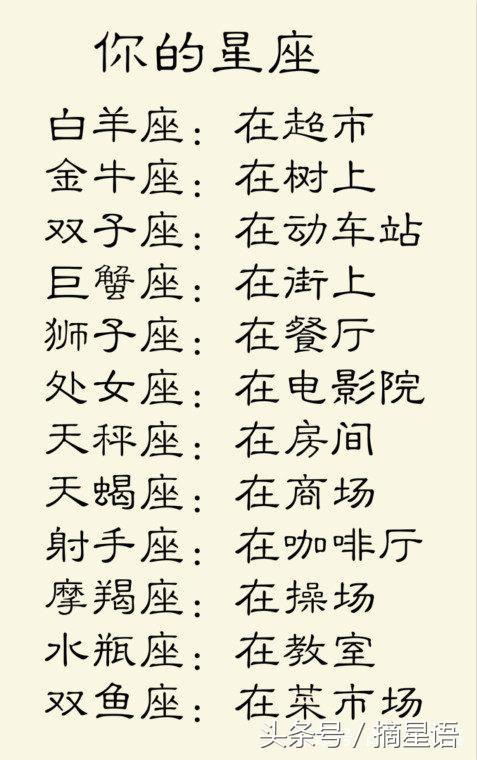 你的星座
白羊座：在超市
金牛座：在树上
双子座：在动车站
巨蟹座：在街上
狮子座：在餐厅
处女座：在电影院
天秤座：在房间
天蝎座：在商场
射手座：在咖啡厅
摩羯座：在操场
水瓶座：在教室
双鱼座：在菜市场
头条号／摘星语